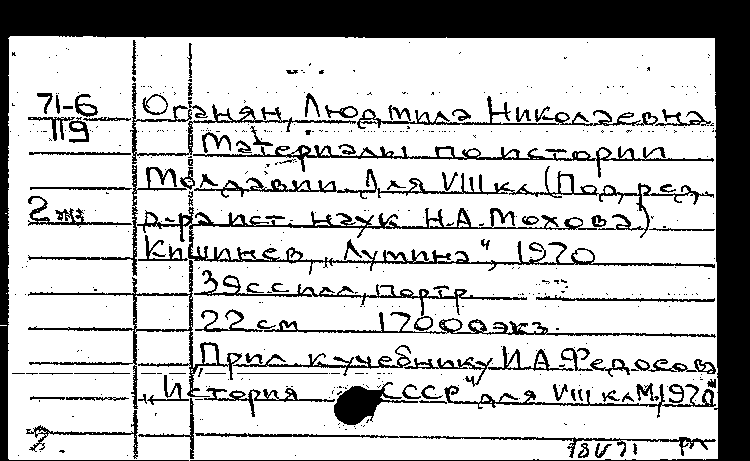 71-6
119
Оганян, Людмила Николаевна
Материалы по истории
Молдавии. Для VIII кл. (Под ред.
2 экз
д-ра ист. наук Н.А. Мохова).
Кишинев, „Лумина", 1970
39с с илл, портр.
22 см 17000 экз.
Прил. к учебнику И.А. Федосов
„История СССР" для VIII кл М., 1970
18 V 71